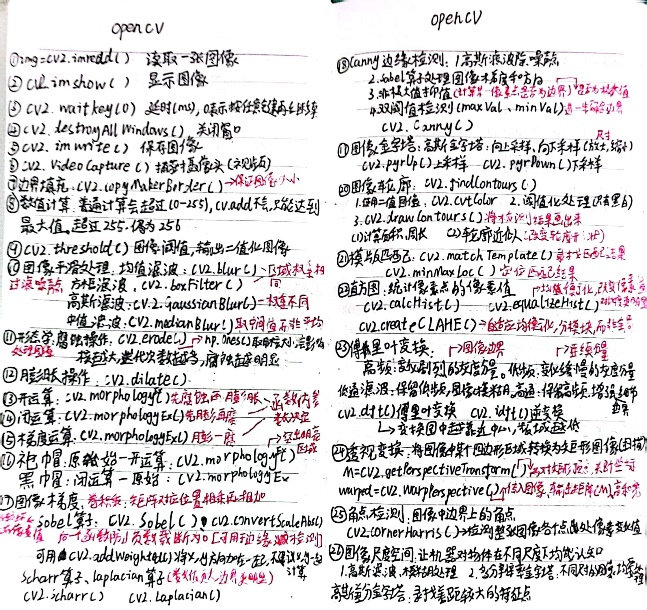 opencv
①img=cv2.imread() 读取一张图像
② cv2.imshow() 显示图像
③ cv2.waitkey(0) 延时(ms),0表示按任意键再继续
④ cv2.destroyAllWindows(), 关闭窗口
⑤ cv2.imwrite() 保存图像
⑥ cv2.VideoCapture() 捕获摄像头
⑦边界填充. cv2.copyMakeBorder()→保证图像大小
⑧数值计算:普通计算会超过(0-255), cv.add不会,只能达到
最大值,超过255.仍为256
⑨ cv2.threshold() 图像阈值,输出二值化图像
⑩图像平滑处理. 均值滤波:cv2.blur()
过滤噪点 方框滤波.cv2.boxFilter() 区域权重相同
高斯滤波:cv2.gaussianBlur()→权值不同
中值滤波.cv2.medianBlur()取中间值而非平均
⑪形态学.腐蚀操作.cv2.erode()→np.ones()
核越大,迭代次数越多,腐蚀越明显
⑫膨胀操作.cv2.dilate()
⑬开运算:cv2.morphology()先腐蚀再膨胀
⑭闭运算:cv2.morphologyEx()先膨再腐
⑮梯度运算:cv2.morphologyEx()膨-腐
⑯礼帽:原始-开运算:cv2.morphologyEx
黑帽:闭运算-原始:cv2.morphologyEx
⑰图像梯度. 卷积核:矩阵对应位置相乘再相加
Sobel算子.cv2.Sobel() cv2.convertScaleAbs()
可用cv2.addWeighted()将x,y方向加在一起,不建议x,y一起计算
scharr算子、laplacian算子
cv2.scharr() cv2.Laplacian()
opencv
⑱Canny边缘检测:1.高斯滤波除噪点
2.sobel算子处理图像梯度和方向
3.非极大值抑制
4.双阈值检测(maxVal、minVal)进一步确定边界
cv2.Canny()
⑲图像金字塔:高斯金字塔:向上采样,向下采样(放大,缩小)尺寸
cv2.pyrUp()上采样 cv2.pyrDown()下采样
⑳图像轮廓:cv2.findContours()
1.使用二值图像:cv2.cvtColor 2.阈值化处理
3.cv2.drawContours()将检测结果画出来
(1)计算面积,周长 (2)轮廓近似
㉑模板匹配:cv2.matchTemplate()
cv2.minMaxLoc()定位匹配结果
㉒直方图:统计像素点的像素值
cv2.calcHist() cv2.equalizeHist()
cv2.createCLAHE()→自适应均衡化,分模块而非整合
㉓傅里叶变换:
高频:变化剧烈的灰度分量. 低频:变化缓慢的灰度分量
低通滤波:保留低频,图像模糊,高通:保留高频,增强细节
cv2.dft()傅里叶变换 cv2.idft()逆变换
㉔透视变换:将图像中某个四边形区域转换为矩形图像(扫描)
M=cv2.getPerspectiveTransform()
warped=cv2.warpPerspective()
㉕角点检测:图像中边界上的角点
cv2.cornerHarris()→检测整张图像各个点
㉖图像尺度空间:让机器对物体在不同尺度下均能认知
1.高斯滤波 2.多分辨率金字塔
高斯差分金字塔:寻找差距较大的特征点